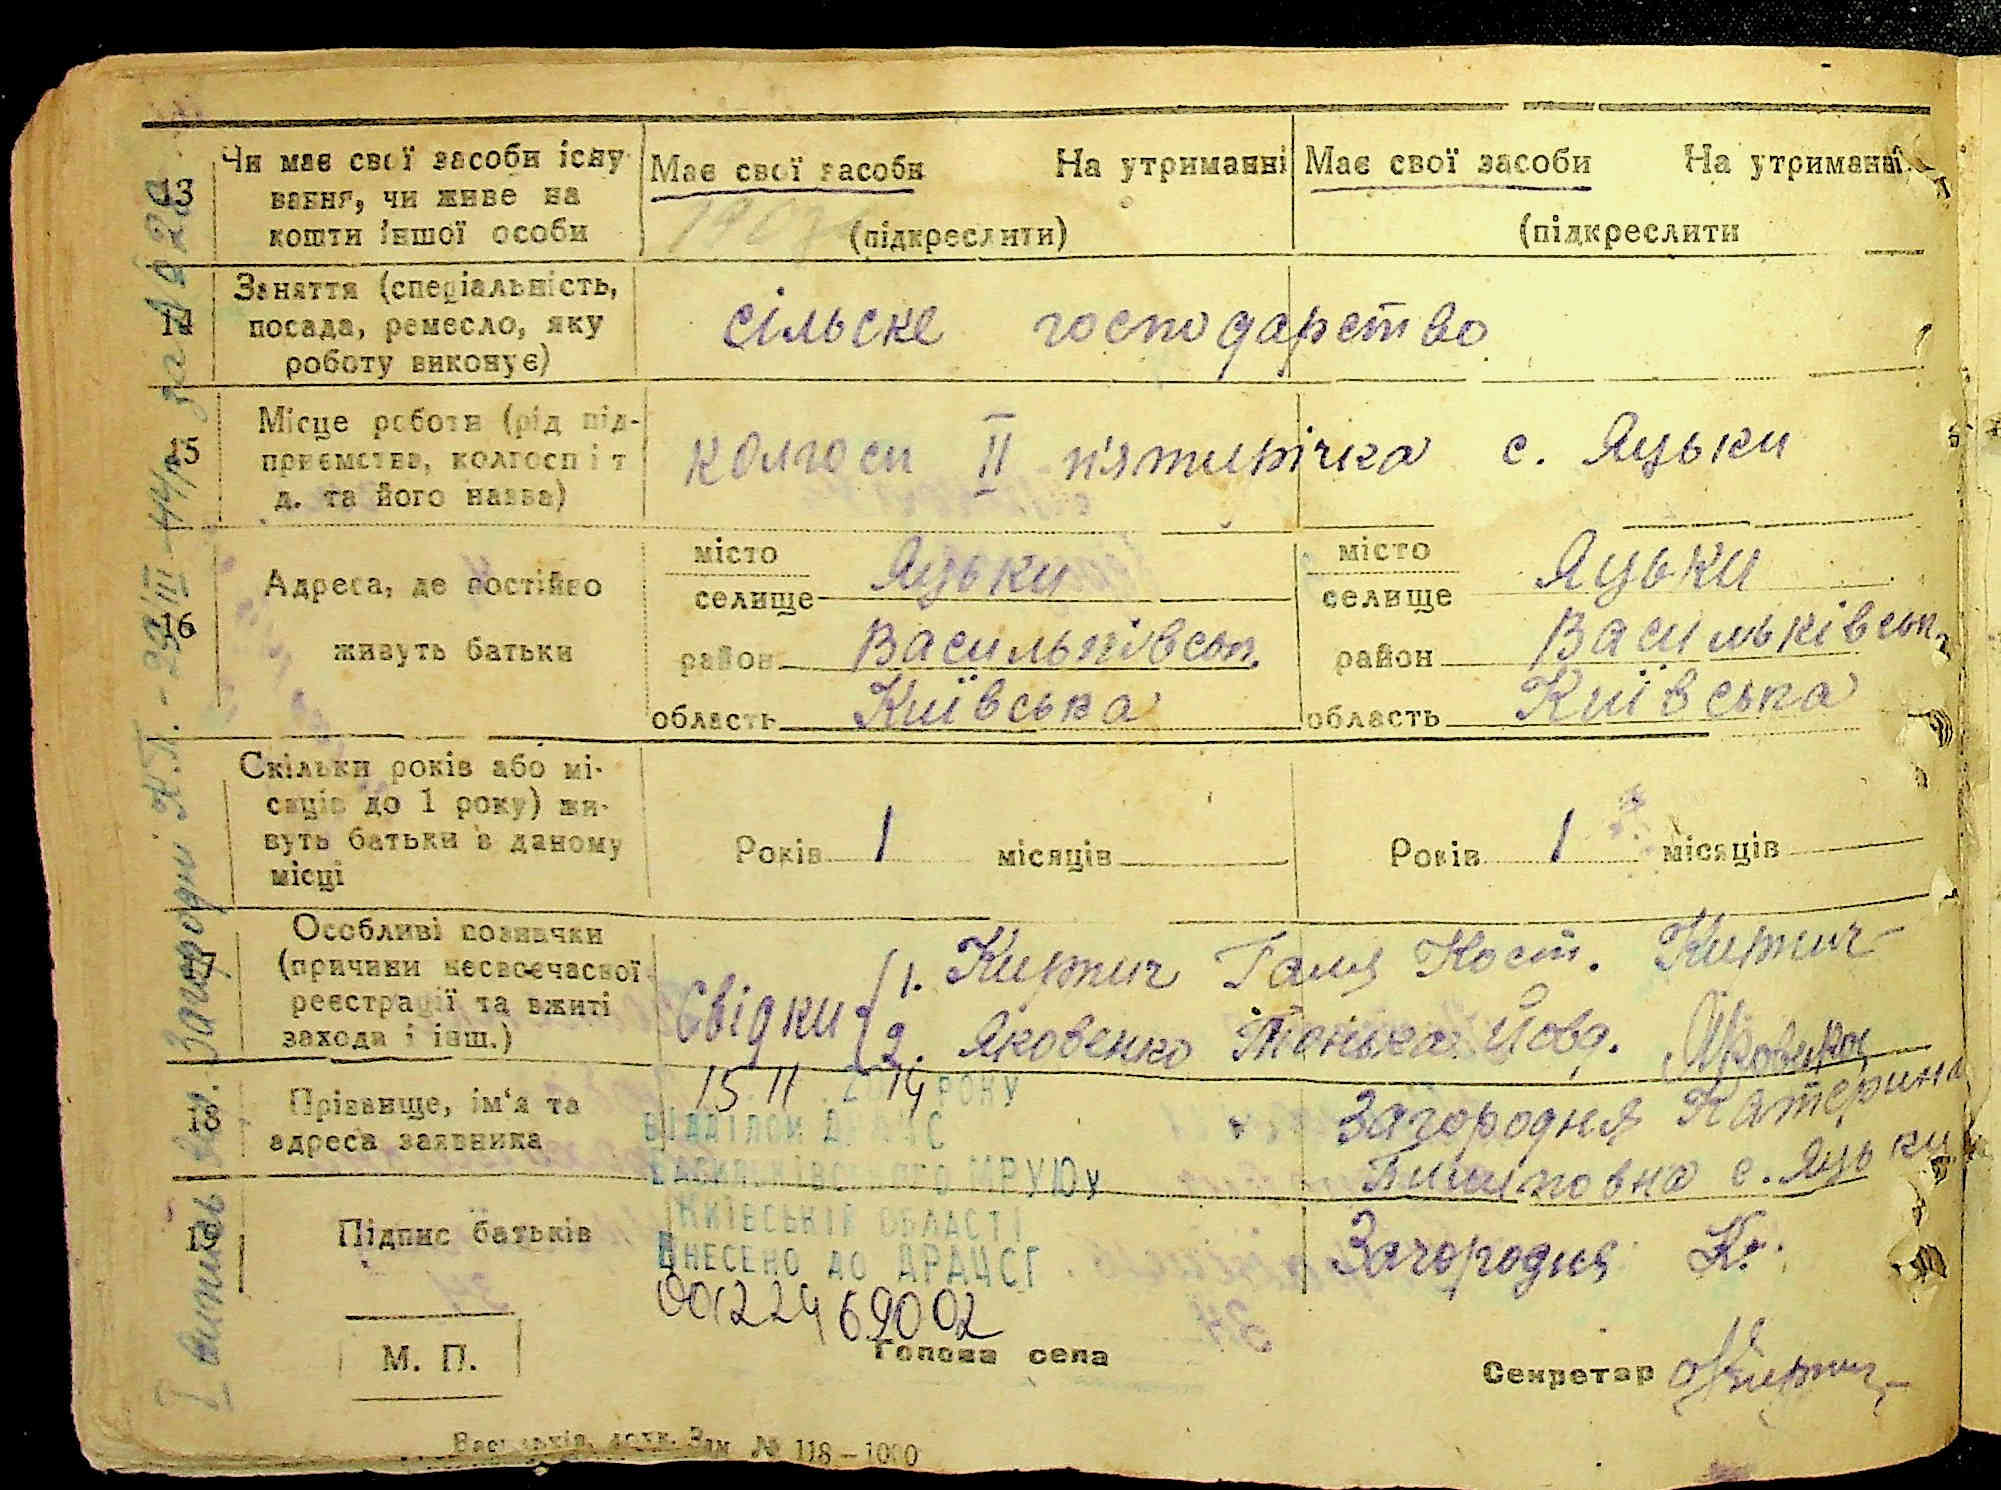 13 Чи має свої засоби існу- Має свої засоби На утриманні Має свої засоби На утриманні
вання, чи живе на
кошти іншої особи (підкреслити) (підкреслити
14 Заняття (спеціальність, посада, ремесло, яку роботу виконує) сільске господарство
15 Місце роботи (рід під-
приємства, колгосп і т колгосп II п'ятирічка с. Яцьки
д. та його назва)
16 Адреса, де постійно живуть батьки
місто Яцьки місто Яцьки
селище селище
район Васильківськ. район Васильківськ.
область Київська область Київська
Скільки років або мі-
сяців до 1 року) жи-
вуть батьки в даному Років 1 місяців Років 1 місяців
місці
17 Особливі позначки
(причини несвоєчасної
реєстрації та вжиті
заходи і інш.)
Свідки 1. Кирпич Галя Кост. Кирпич
2. Яковенко Тонька Йовд.
18 Прізвище, ім'я та
адреса заявника
Загородня Катерина
с. Яцьки
15 11 2014 РОКУ
ВІДДІЛОМ ДРАЦС
ВАСИЛЬКІВСЬКОГО МРУЮ у
КИЇВСЬКІЙ ОБЛАСТІ
ВНЕСЕНО ДО ДРАЦСГ
00122469002
19 Підпис батьків Загородня К.
М. П.
Голова села
Секретар
Зам № 118—1000